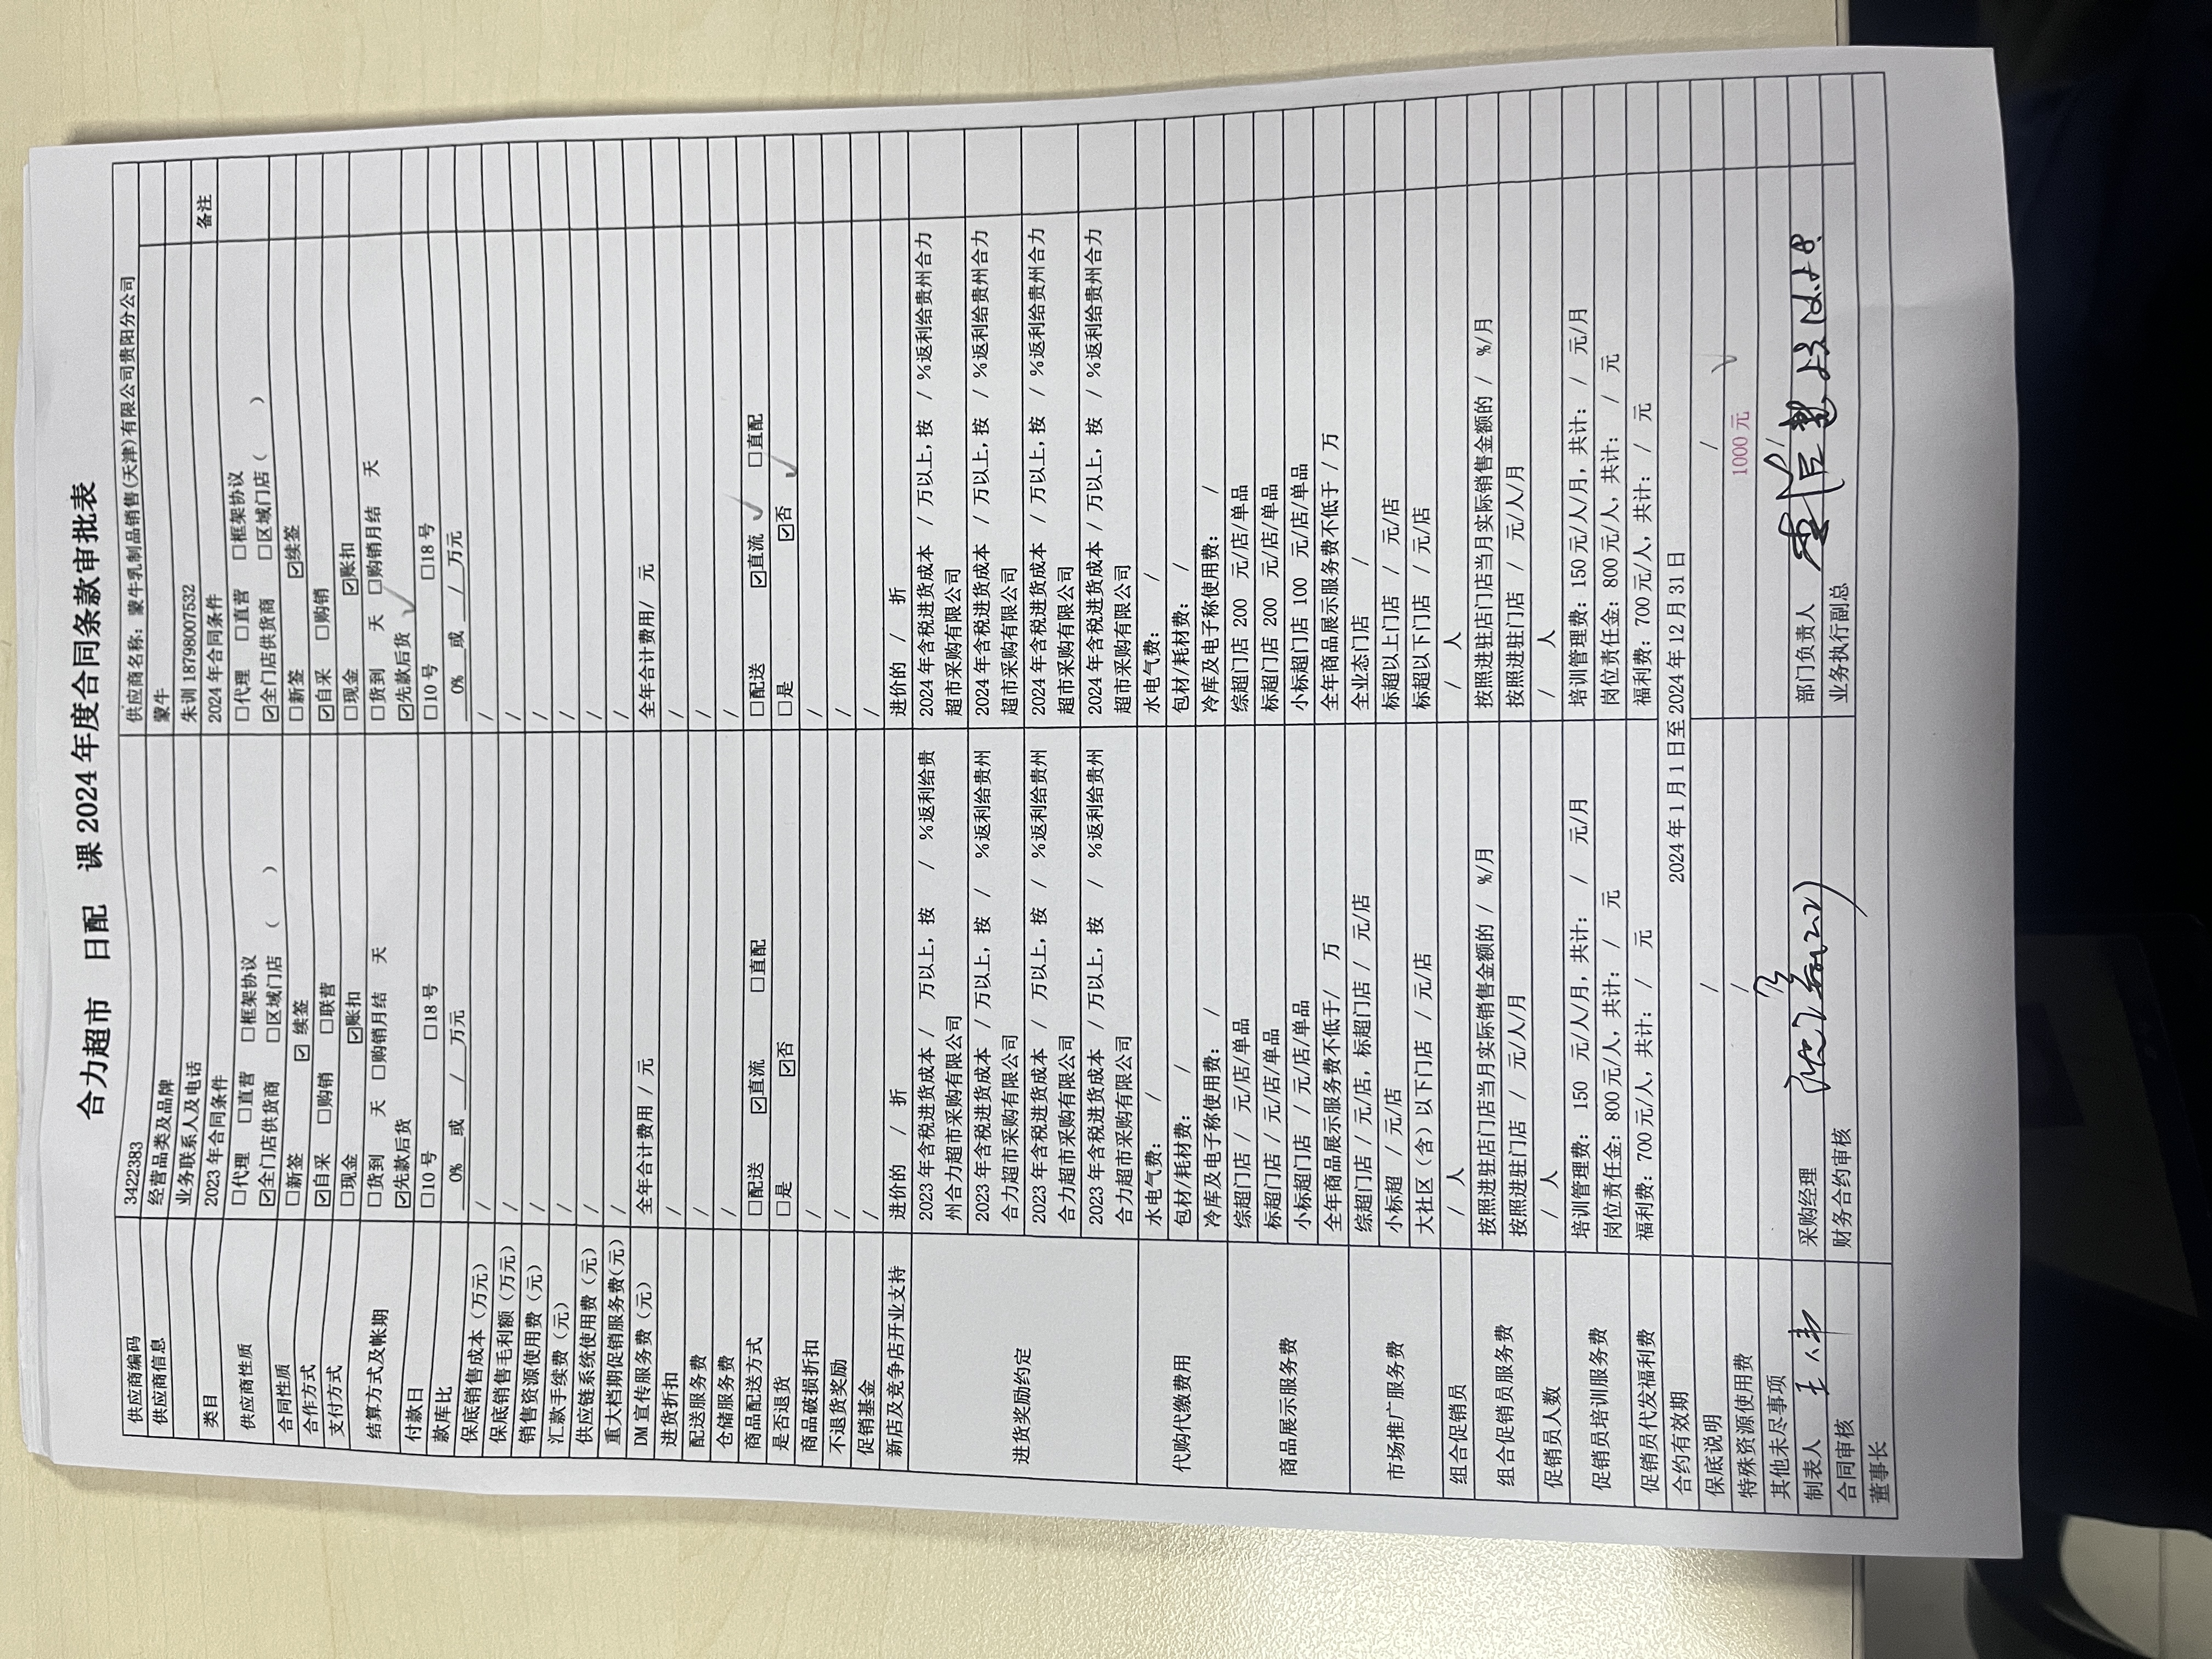 合力超市 日配 课 2024 年度合同条款审批表
供应商编码 3422383 供应商名称：蒙牛乳制品销售(天津)有限公司贵阳分公司
供应商信息 经营品类及品牌 蒙牛
业务联系人及电话 朱训 18798007532
类目 2023 年合同条件 2024 年合同条件 备注
供应商性质 □代理 □直营 □框架协议 □代理 □直营 □框架协议
☑全门店供货商 □区域门店（ ） ☑全门店供货商 □区域门店（ ）
合同性质 □新签 ☑ 续签 □新签 ☑续签
合作方式 ☑自采 □购销 □联营 ☑自采 □购销
支付方式 □现金 ☑账扣 □现金 ☑账扣
结算方式及帐期 □货到 天 □购销月结 天 □货到 天 □购销月结 天
☑先款后货 ☑先款后货
付款日 □10 号 □18 号 □10 号 □18 号
款库比 0% 或 / 万元 0% 或 / 万元
保底销售成本（万元） / /
保底销售毛利额（万元） / /
销售资源使用费（元） / /
汇款手续费（元） / /
供应链系统使用费（元） / /
重大档期促销服务费(元) / /
DM 宣传服务费（元） 全年合计费用 / 元 全年合计费用/ 元
进货折扣 / /
配送服务费 / /
仓储服务费 / /
商品配送方式 □配送 ☑直流 □直配 □配送 ☑直流 □直配
是否退货 □是 ☑否 □是 ☑否
商品破损折扣 / /
不退货奖励 / /
促销基金 / /
新店及竞争店开业支持 进价的 / 折 进价的 / 折
进货奖励约定 2023 年含税进货成本 / 万以上，按 / %返利给贵州合力超市采购有限公司 2024 年含税进货成本 / 万以上，按 / %返利给贵州合力超市采购有限公司
2023 年含税进货成本 / 万以上，按 / %返利给贵州合力超市采购有限公司 2024 年含税进货成本 / 万以上，按 / %返利给贵州合力超市采购有限公司
2023 年含税进货成本 / 万以上，按 / %返利给贵州合力超市采购有限公司 2024 年含税进货成本 / 万以上，按 / %返利给贵州合力超市采购有限公司
2023 年含税进货成本 / 万以上，按 / %返利给贵州合力超市采购有限公司 2024 年含税进货成本 / 万以上，按 / %返利给贵州合力超市采购有限公司
代购代缴费用 水电气费： / 水电气费： /
包材/耗材费： / 包材/耗材费： /
冷库及电子称使用费： / 冷库及电子称使用费： /
商品展示服务费 综超门店 / 元/店/单品 综超门店 200 元/店/单品
标超门店 / 元/店/单品 标超门店 200 元/店/单品
小标超门店 / 元/店/单品 小标超门店 100 元/店/单品
全年商品展示服务费不低于/ 万 全年商品展示服务费不低于 / 万
市场推广服务费 综超门店 / 元/店，标超门店 / 元/店 全业态门店 /
小标超 / 元/店 标超以上门店 / 元/店
大社区（含）以下门店 / 元/店 标超以下门店 / 元/店
组合促销员 / 人 / 人
组合促销员服务费 按照进驻店门店当月实际销售金额的 / %/月 按照进驻店门店当月实际销售金额的 / %/月
按照进驻门店 / 元/人/月 按照进驻门店 / 元/人/月
促销员人数 / 人 / 人
促销员培训服务费 培训管理费： 150 元/人/月，共计： / 元/月 培训管理费：150 元/人/月，共计： / 元/月
岗位责任金：800 元/人，共计： / 元 岗位责任金：800 元/人，共计： / 元
促销员代发福利费 福利费：700 元/人，共计： / 元 福利费：700 元/人，共计： / 元
合约有效期 2024 年 1 月 1 日至 2024 年 12 月 31 日
保底说明 / /
特殊资源使用费 / 1000 元
其他未尽事项
制表人 采购经理 部门负责人
合同审核 财务合约审核 业务执行副总
董事长